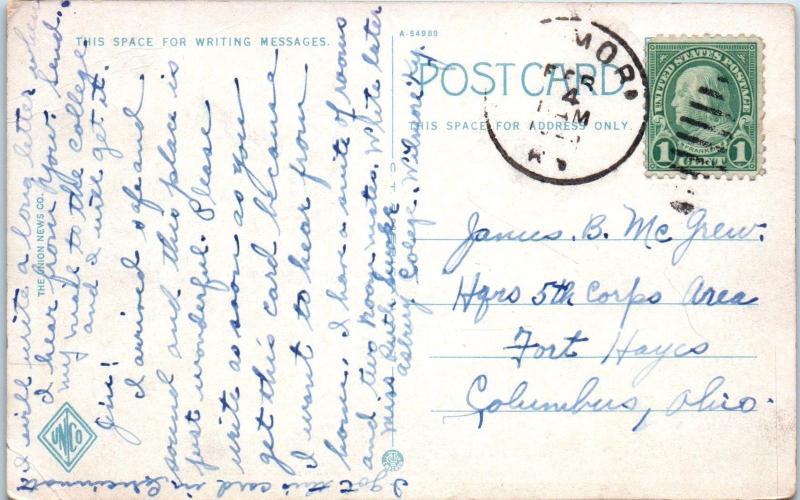 THIS SPACE FOR WRITING MESSAGES.
A-54989
POST CARD
THIS SPACE FOR ADDRESS ONLY.
THE UNION NEWS CO.
UNCO
MOR
FEB
4
AM
UNITED STATES POSTAGE
FRANKLIN
1 CENT 1
Jim:
I arrived safe and
sound and this place is
just wonderful. Please
write as soon as you
get this card because
I want to hear from
home. I have a suite of rooms
and two room mates. Write later
Miss Ruth
Asbury College. Wilmore, Ky.
I will write a long letter when
I hear from you. Send
my mail to the college
and I will get it.
I got this card in Cincinnati
James. B. Mc Grew.
Hqrs 5th Corps Area
Fort Hayes
Columbus, Ohio.